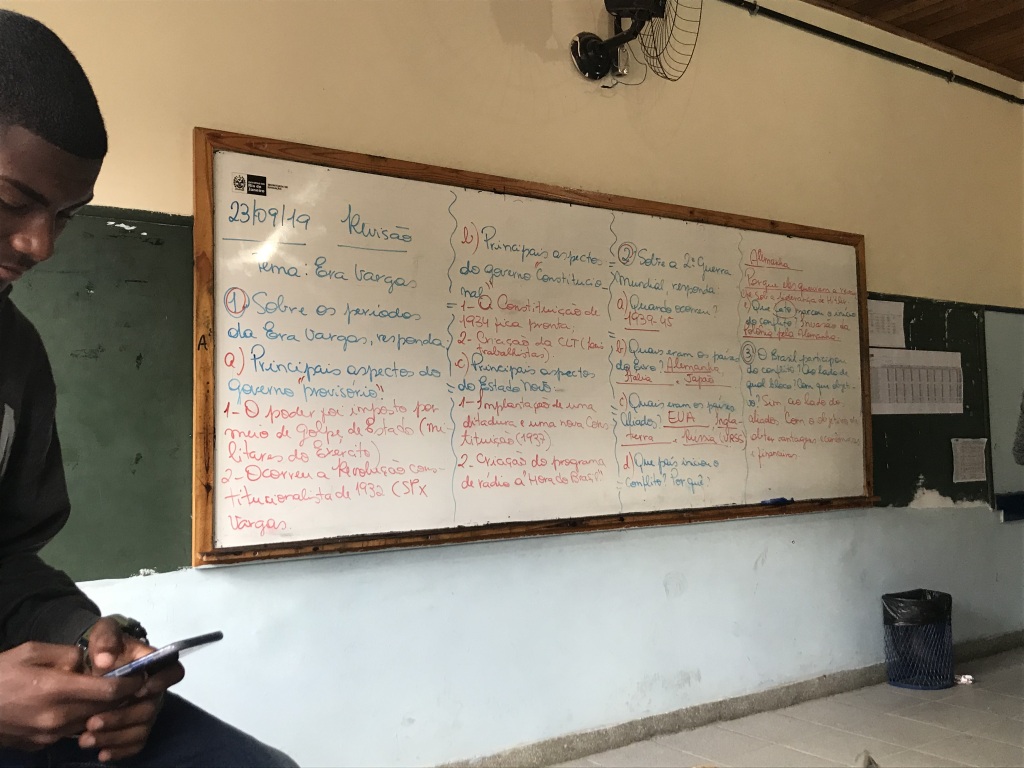 23/09/19 Revisão
Tema: Era Vargas
① Sobre os períodos
da Era Vargas, responda
a) Principais aspectos do
governo "provisório"
1- O poder foi imposto por
meio de golpe de Estado (mi-
litares do Exército)
2- Ocorreu a Revolução cons-
titucionalista de 1932 (SP x
Vargas.
b) Principais aspectos
do governo "Constitucio-
nal"
1- A Constituição de
1934 fica pronta.
2- Criação da CLT (Leis
trabalhistas).
c) Principais aspectos
do Estado Novo
1- Implantação de uma
ditadura e uma nova Cons
tituição (1937)
2- Criação do programa
de rádio a "Hora do Brasil".
② Sobre a 2ª Guerra
Mundial, responda
a) Quando ocorreu?
1939-45
b) Quais eram os países
do Eixo? Alemanha,
Itália, Japão
c) Quais eram os países
Aliados: EUA, Ingla-
terra, Rússia (URSS)
d) Que país iniciou o
conflito? Por quê?
Alemanha
Porque eles queriam a
sob a liderança de Hitler
Que fato marcou o início
do conflito? Invasão da
Polônia pela Alemanha.
③ O Brasil participou
do conflito? Ao lado de
qual bloco? Com que objeti-
vo? Sim, ao lado do
aliados. Com o objetivo de
obter vantagens econômicas
e financeiras.
A
Rio de
Janeiro